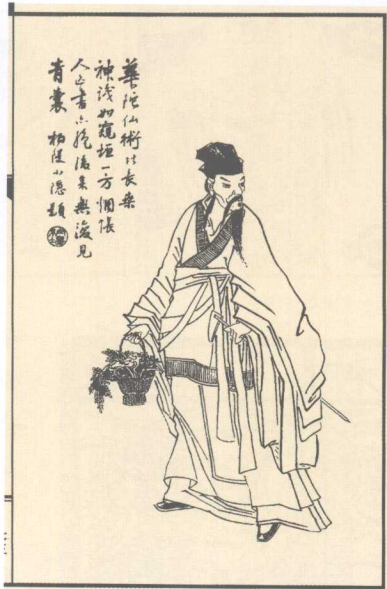 華陀仙術比長桑
神識如窺垣一方惆悵
人亡書亦絕後無復見
青囊 小隱題